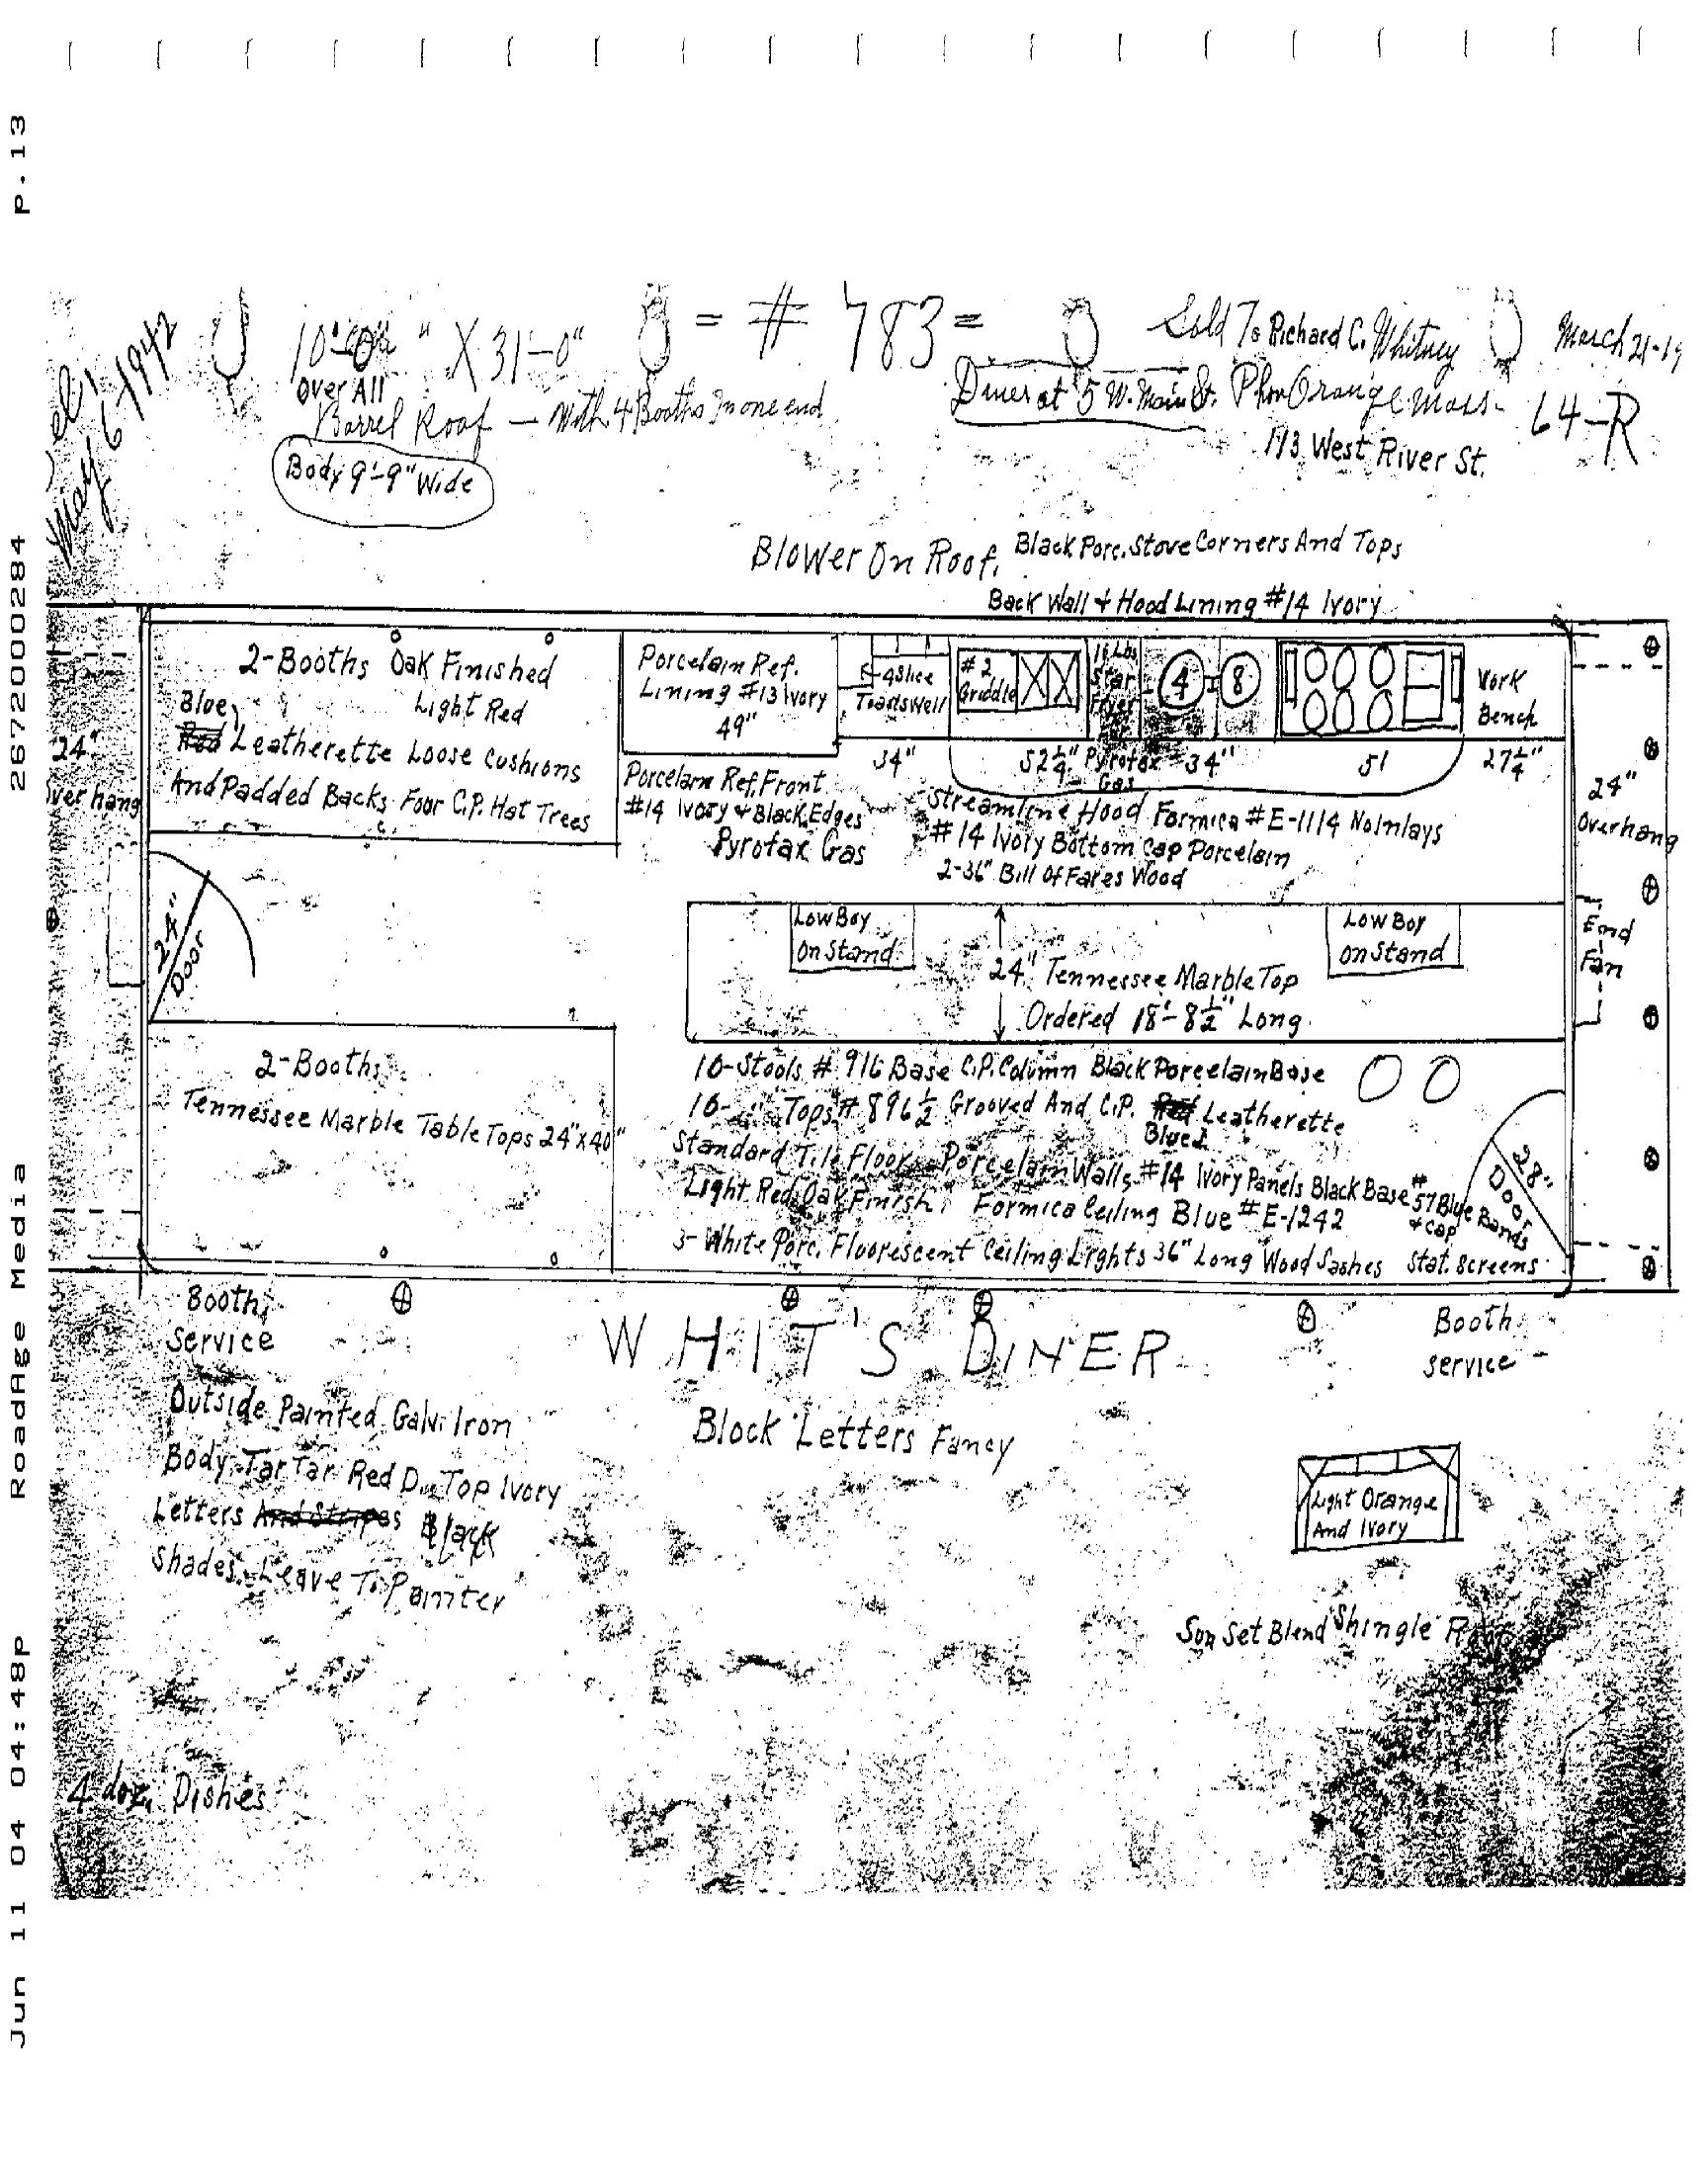 P.13
2672000284
RoadAge Media
Jun 11 04 04:48p
May 6 1942
10'-0" X 31'-0"
Over All
= # 783 =
Sold To Richard C. Whitney
March 21-19
Barrel Roof - With 4 Booths In one end
Diner at 5 W. Main St. Phon Orange Mass- 64-R
113 West River St.
Body 9'-9" Wide
Blower On Roof. Black Porc. Stove Corners And Tops
Back Wall + Hood Lining #14 Ivory
2-Booths Oak Finished
Light Red
Blue
Red Leatherette Loose Cushions
And Padded Backs Four C.P. Hat Trees
24"
Over hang
Porcelain Ref.
Lining #13 Ivory
49"
4 Slice
Toastswell
#2
Griddle
16 Lbs
Star
Fryer
4
8
Work
Bench
34"
52 1/4"
Pyrofax
Gas
34"
51
27 1/4"
Porcelain Ref. Front
#14 Ivory + Black Edges
Pyrofax Gas
Streamline Hood Formica #E-1114 No Inlays
#14 Ivory Bottom Cap Porcelain
2-36" Bill Of Fares Wood
24"
Overhang
24"
Door
Low Boy
On Stand
Low Boy
On Stand
24" Tennessee Marble Top
Ordered 18'-8 1/2" Long
End
Fan
2-Booths
Tennessee Marble Table Tops 24"x40"
10-Stools # 916 Base C.P. Column Black Porcelain Base
10- " Tops # 896 1/2 Grooved And C.P. Red Leatherette
Blue
Standard Tile Floor Porcelain Walls #14 Ivory Panels Black Base #57 Blue Bands
+ Cap
Light Red Oak Finish. Formica Ceiling Blue #E-1242
3-White Porc. Fluorescent Ceiling Lights 36" Long Wood Sashes Stat. Screens
28"
Door
Booth
Service
WHIT'S DINER
Booth
Service
Block Letters Fancy
Outside Painted Galv. Iron
Body Tar Tar Red D. Top Ivory
Letters And Stripes Black
Shades. Leave To Painter
Light Orange
And Ivory
Sun Set Blend Shingle Roof
4 doz. Dishes